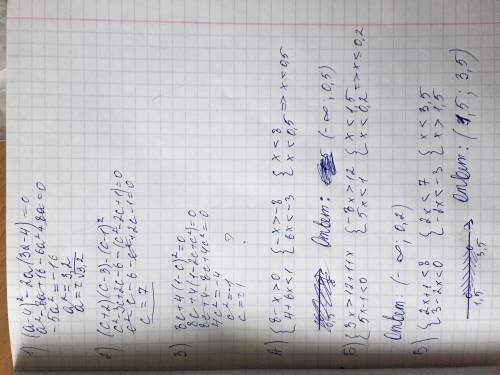 1) (a-4)² - 2a(3a-4) = 0
a² - 8a + 16 - 6a² + 8a = 0
-5a² = -16
a² = 3,2
a = ±√3,2
2) (c+2)(c-3) - (c-1)²
c² - 3c + 2c - 6 - (c² - 2c + 1) = 0
c² - c - 6 - c² + 2c - 1 = 0
c = 7
3) 8c + 4(1-c)² = 0
8c + 4(1 - 2c + c²) = 0
8c + 4 - 8c + 4c² = 0
4c² = -4
c² = -1
?
А) { 5-x>0 4+6x<1 { -x>-8 6x<-3 { x<8 x<0,5 => x<0,5
Ответ: (-∞; 0,5)
Б) { 3x>12+11x 5x-1<0 { -8x>12 5x<1 { x<1,5 x<0,2 => x<0,2
Ответ: (-∞; 0,2)
В) { 2x+1<8 3-2x<0 { 2x<7 -2x<-3 { x<3,5 x>1,5
1,5 3,5 Ответ: (1,5; 3,5)